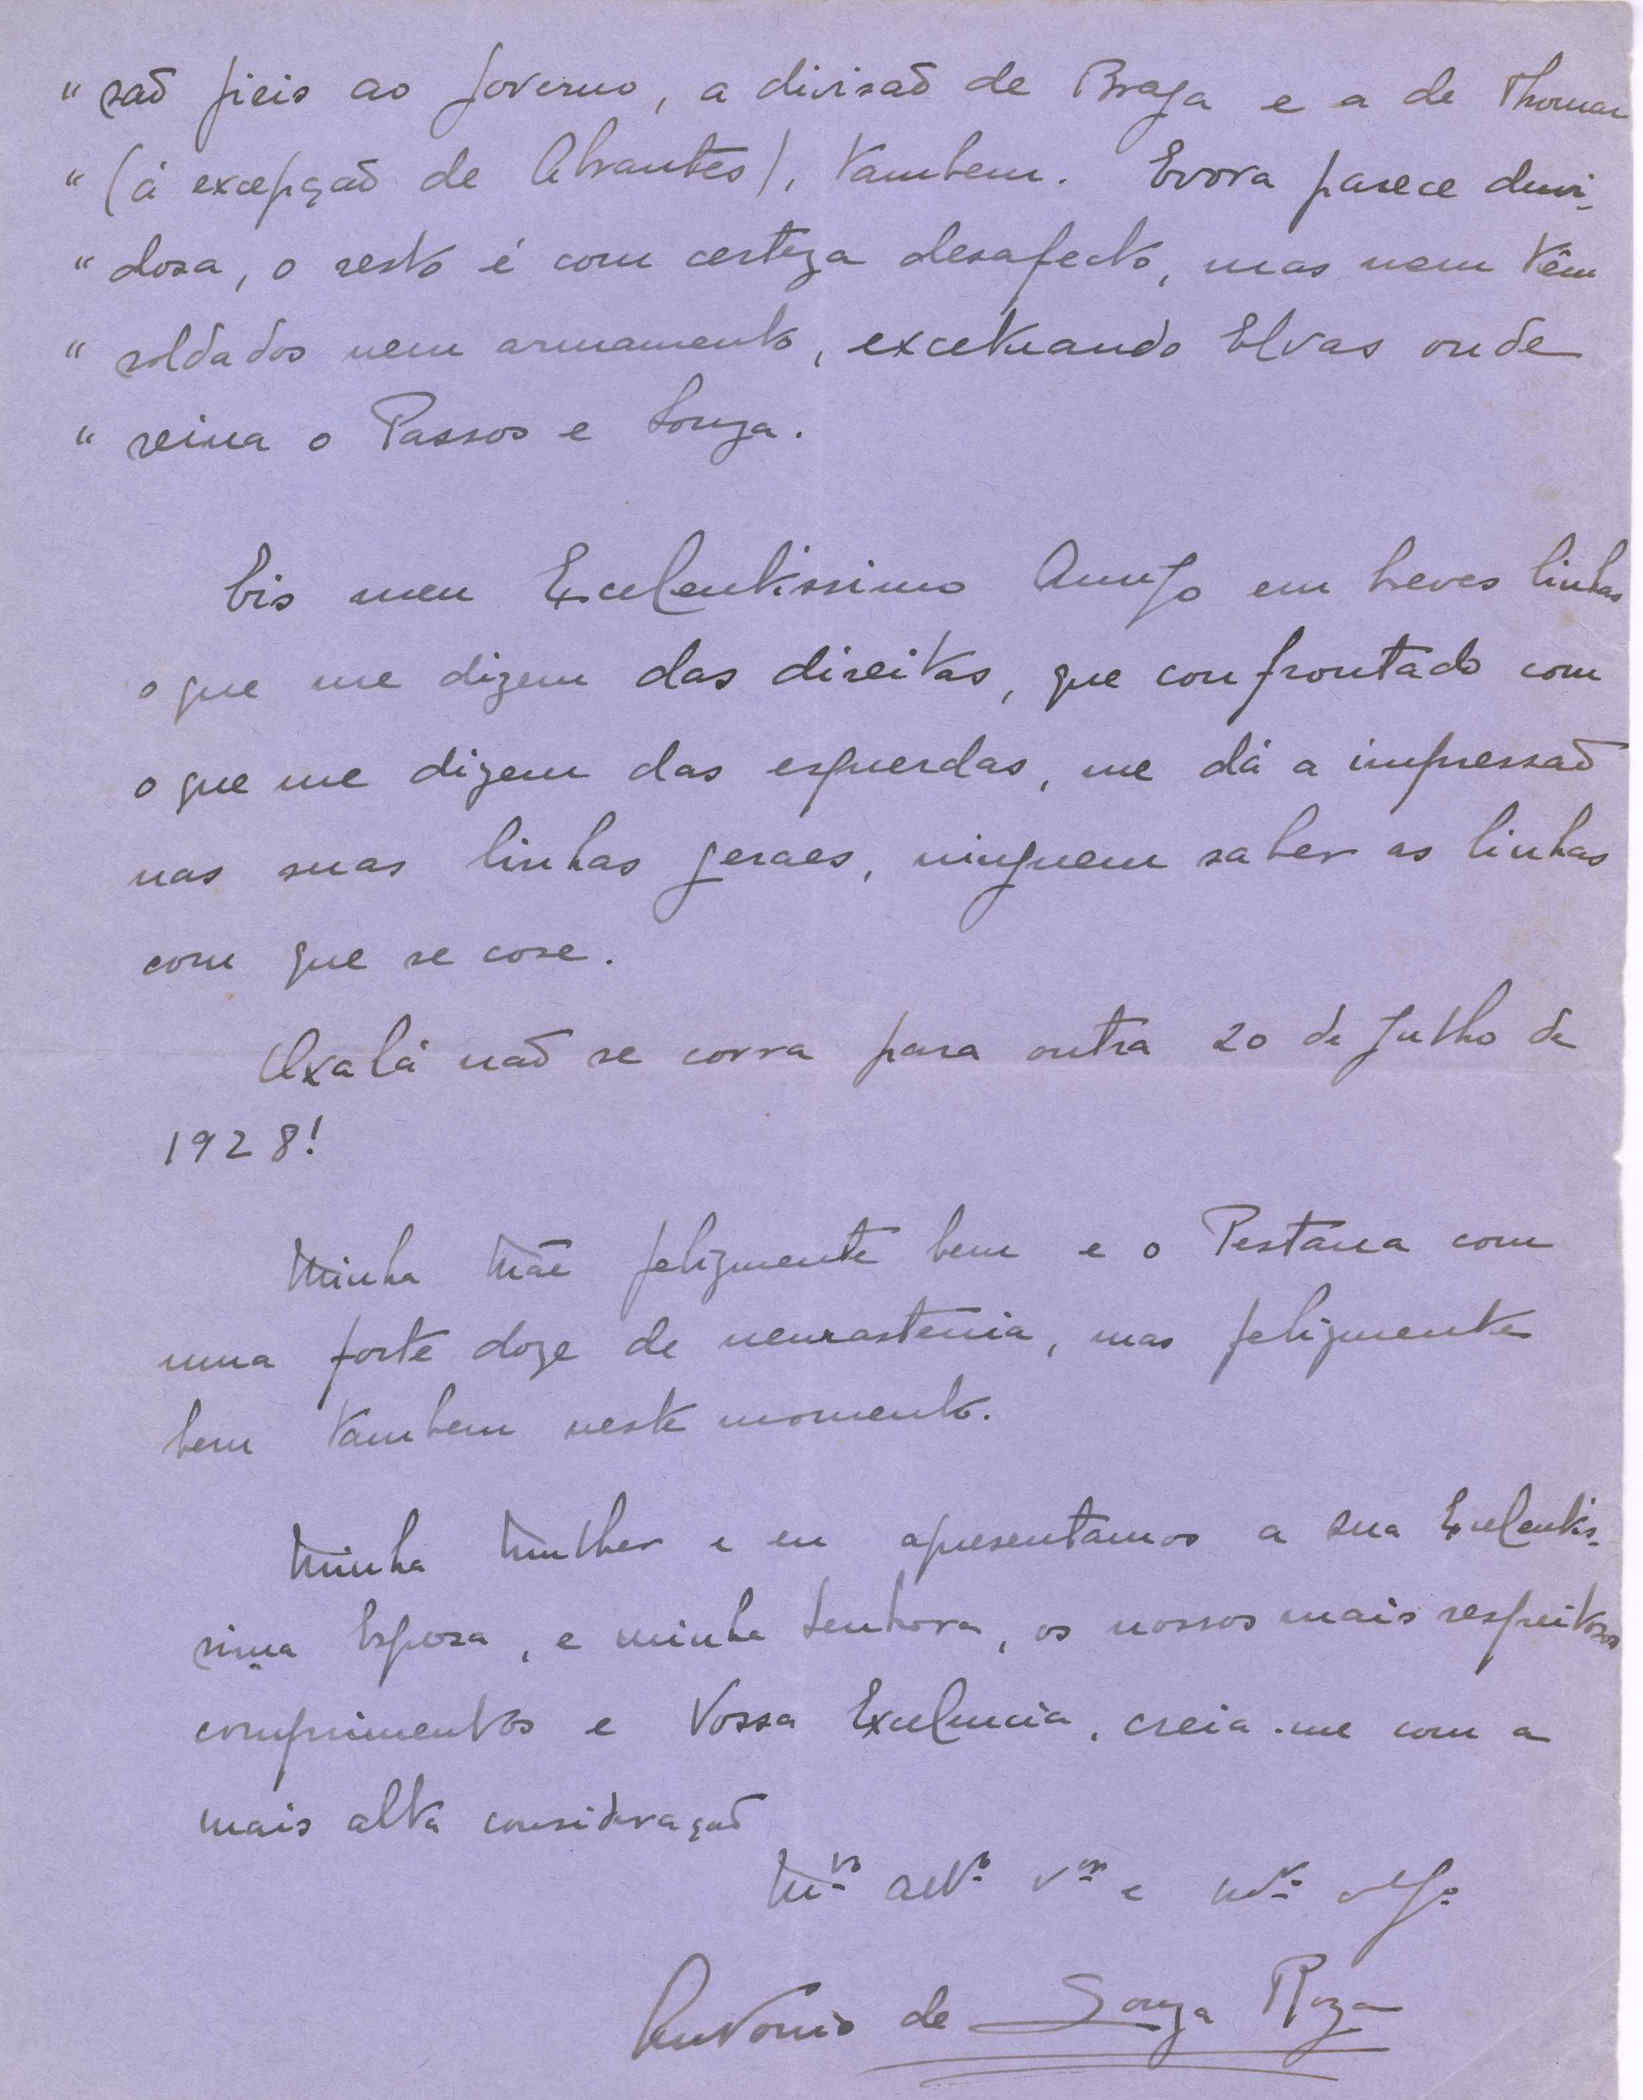 " saõ fieis ao Governo, a divisaõ de Braga e a de Thomar
" (á excepçaõ de Abrantes), tambem. Evora parece duvi-
" dosa, o resto é com certeza desafecto, mas nem têm
" soldados nem armamento, excetuando Elvas onde
" reina o Passos e Souza.
Eis meu Excelentissimo Amigo em breves linhas
o que me dizem das direitas, que confrontado com
o que me dizem das esquerdas, me dá a impressaõ
nas suas linhas geraes, ninguem saber as linhas
com que se cose.
Oxalá naõ se corra para outra 20 de Julho de
1928!
Minha Mãe felizmente bem e o Pestana com
uma forte doze de neurastenia, mas felizmente
bem tambem neste momento.
Minha Mulher e eu apresentamos a sua Excelentis-
sima Esposa, e minha Senhora, os nossos mais respeitosos
comprimentos e Vossa Excelencia, creia-me com a
mais alta consideraçaõ
Mto att.º v.or e
Antonio de Souza Roza